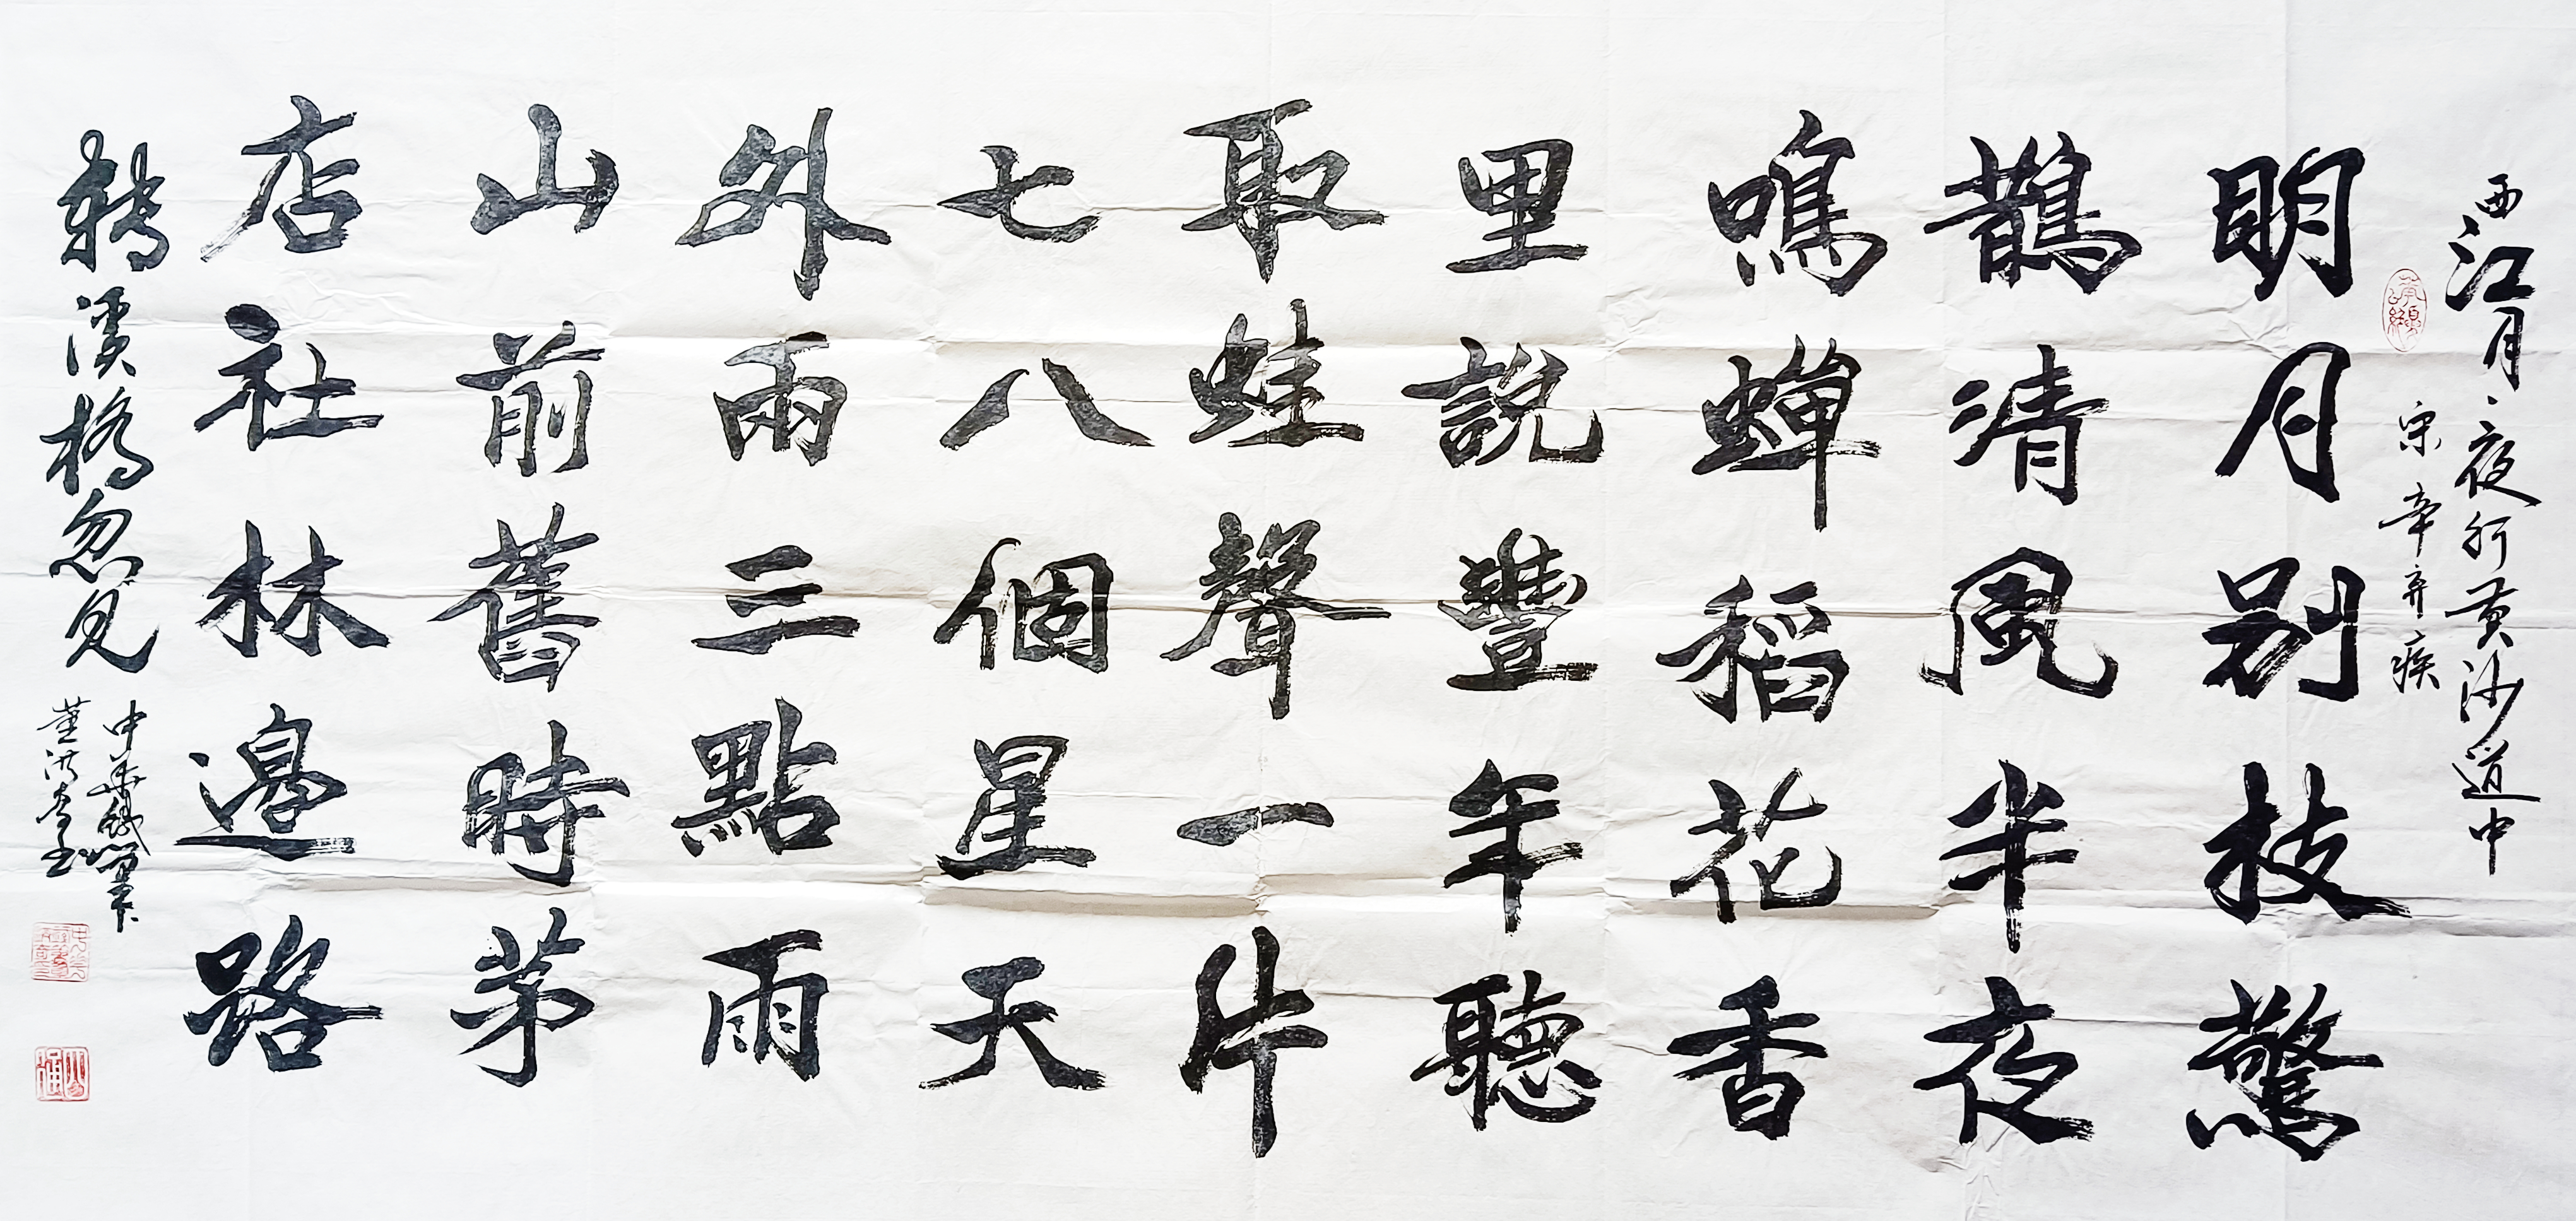 西江月·夜行黄沙道中
宋 辛弃疾
明月别枝驚
鵲清風半夜
鳴蟬稻花香
里說豐年聽
取蛙聲一片
七八個星天
外雨三點雨
山前舊時茅
店社林邊路
轉溪橋忽見